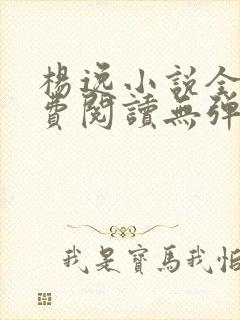 楊逸小說全
費閱讀無彈
我是寶馬我怕